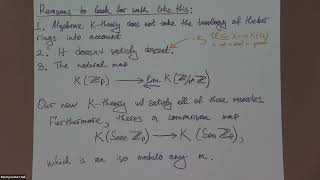 Reasons to look for smth. like this:
1. Algebraic K-theory does not take the topology of Huber
rings into account
2. It doesn't satisfy descent.
3. The natural map
K(ℤₚ) → lim K(ℤ/pⁿℤ)
Our new K-theory will satisfy all of these
Furthermore, there's a comparison map
K(Spec ℤₚ) → K(Spa ℤₚ),
which is an iso modulo any m.